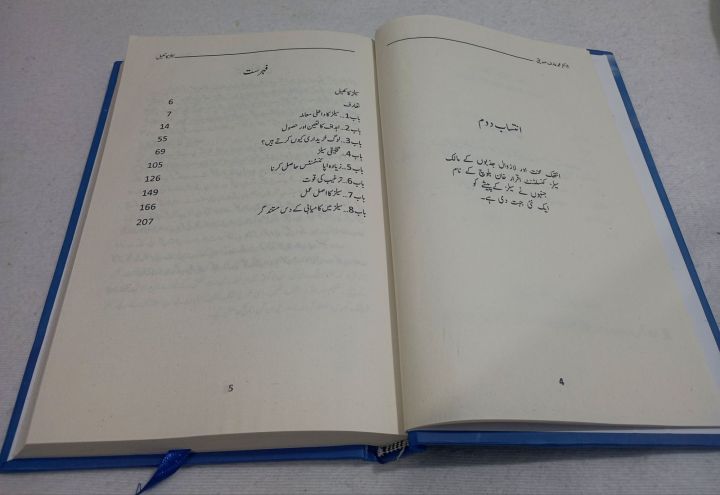 ڈاکٹر محمد عارف صدیقی
انتساب دوم
انتھک محنت اور لازوال جذبوں کے مالک
سیلز کنسلٹنٹ اقرار خان بلوچ کے نام
جنہوں نے سیلز کے پیشے کو
ایک نئی جہت دی ہے۔
4
سیلز کا کھیل
فہرست
سیلز کا کھیل
تعارف 6
باب 1.. سیلز کا داخلی معاملہ 7
باب 2.. اہداف کا تعین اور حصول 14
باب 3.. لوگ خریداری کیوں کرتے ہیں؟ 55
باب 4.. تخلیقی سیلز 69
باب 5.. زیادہ اپائنٹمنٹس حاصل کرنا 105
باب 6.. ترغیب کی قوت 126
باب 7.. سیلز کا اصل عمل 149
باب 8.. سیلز میں کامیابی کے دس مستند گر 166
207
5